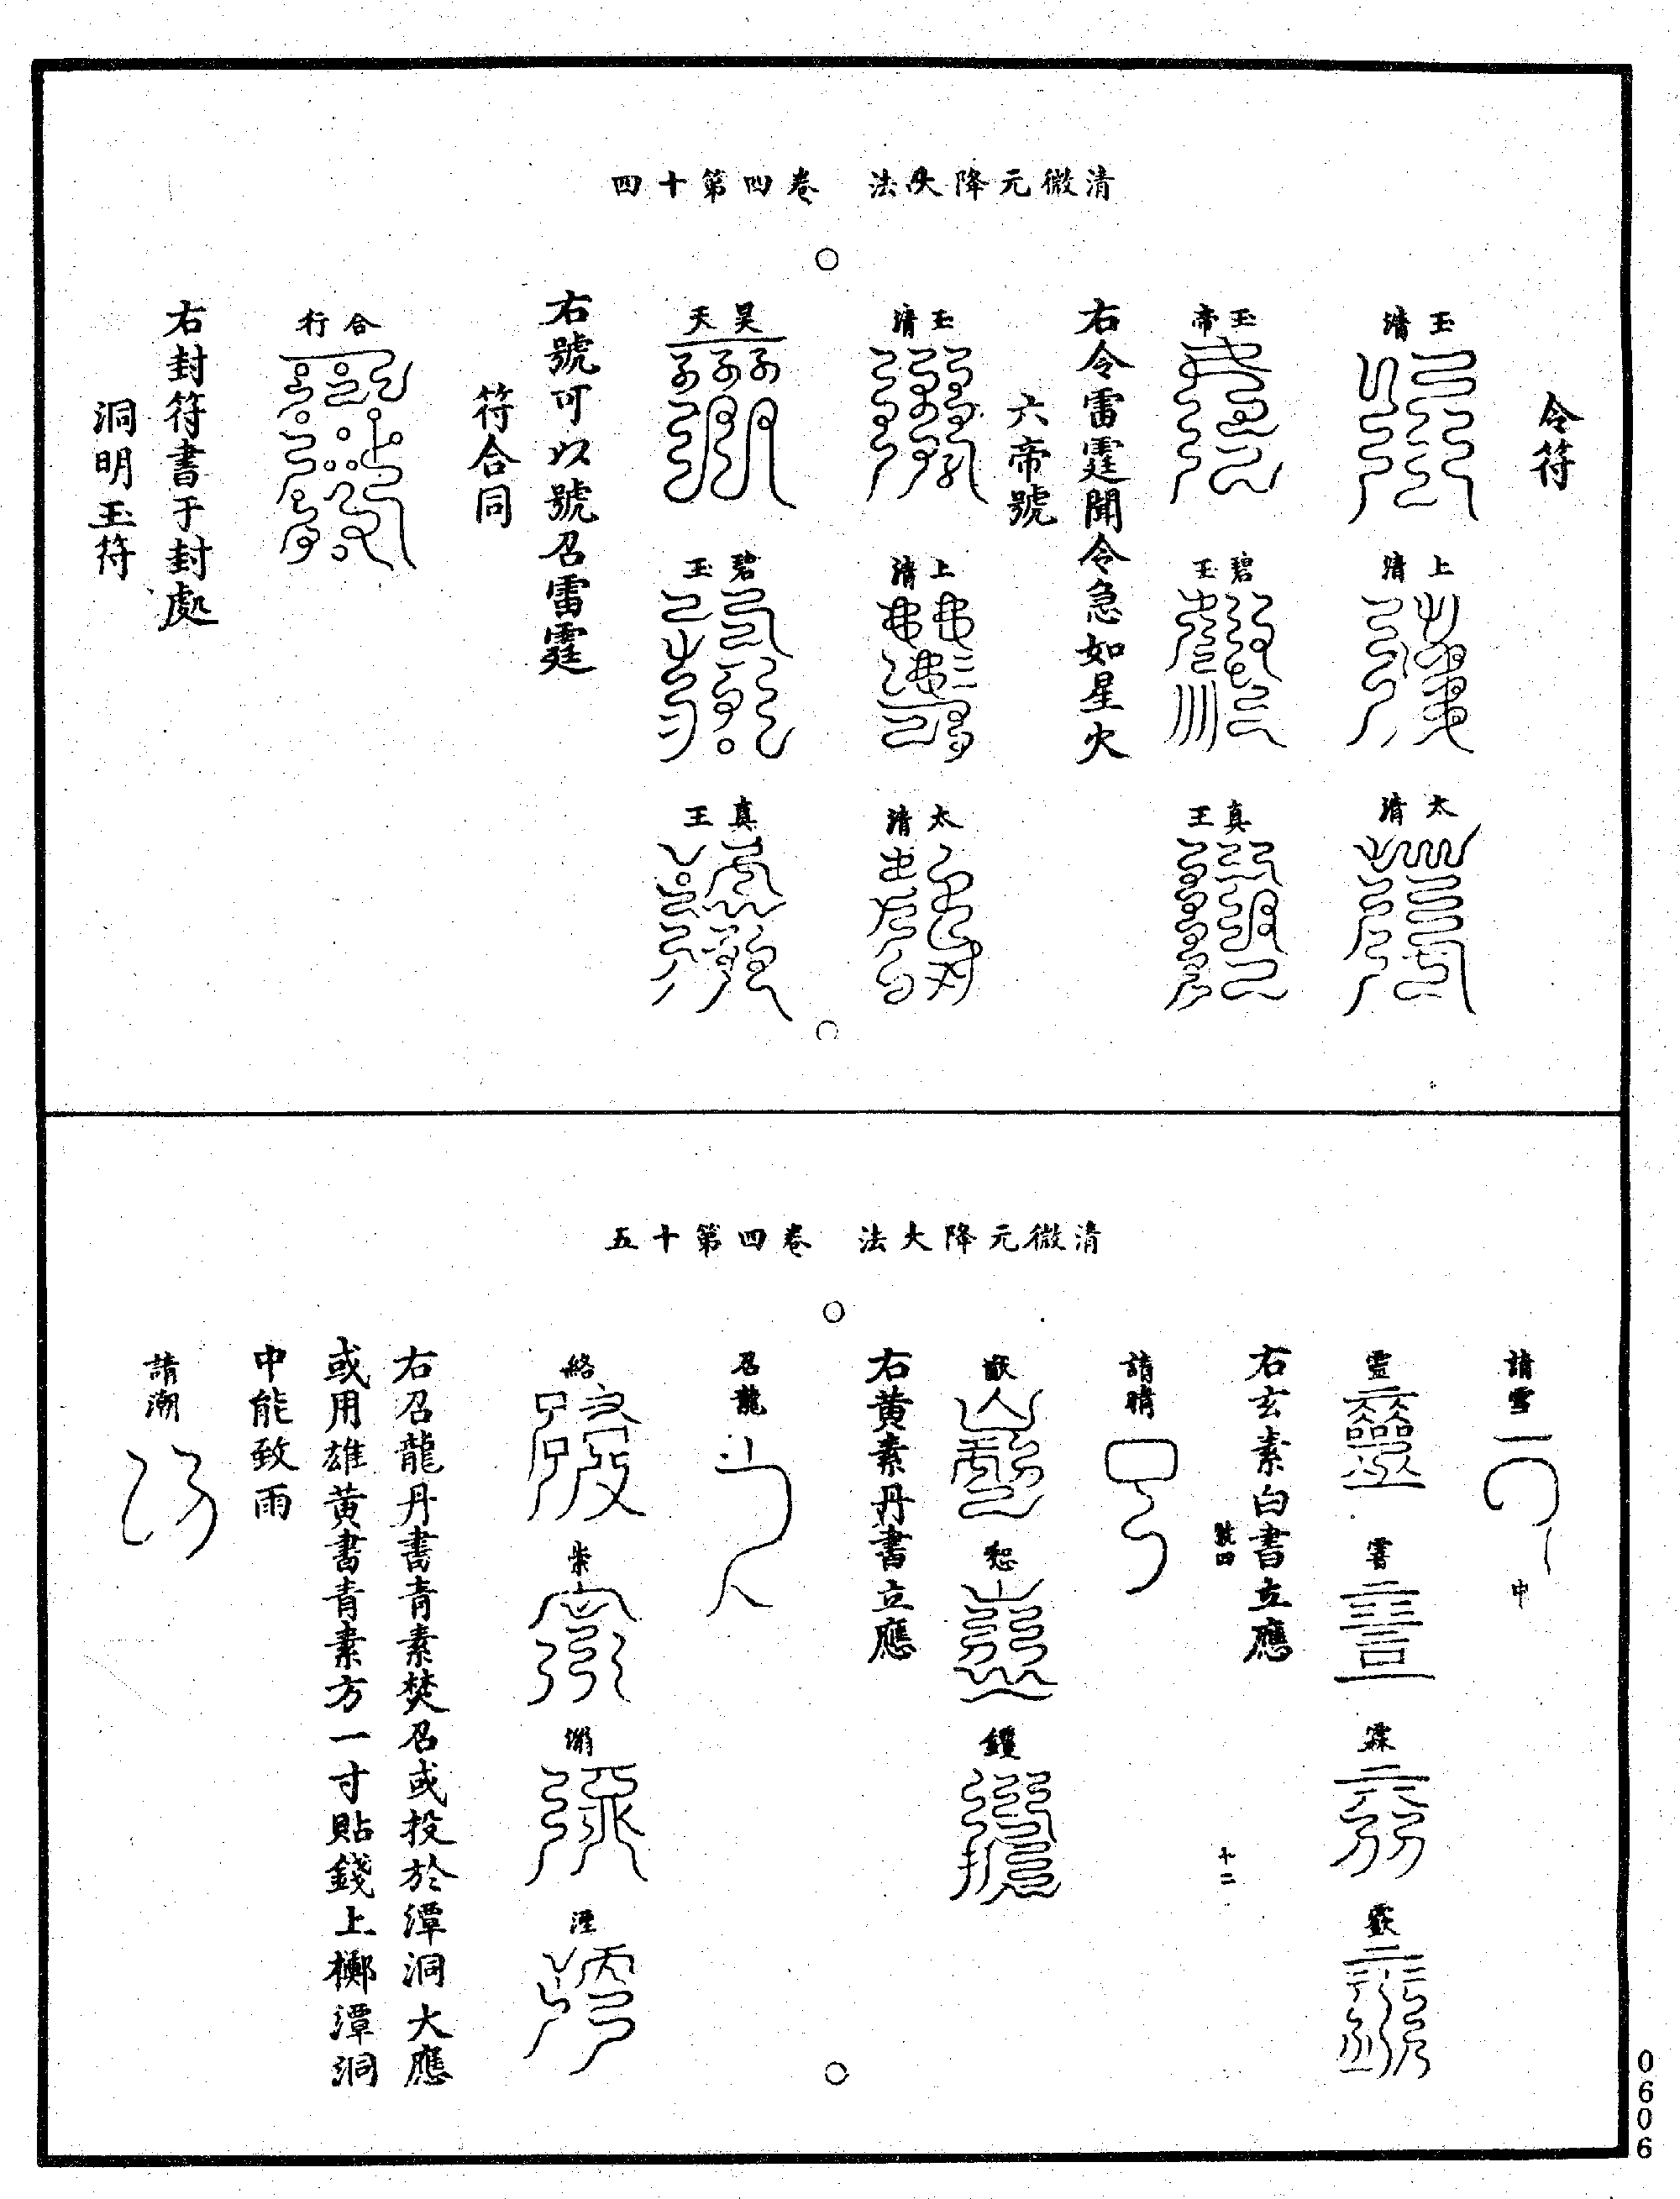 清微元降大法　卷四第十四
令符
玉清
上清
太清
玉帝
碧玉
真王
右令雷霆聞令急如星火
六帝號
玉清
上清
太清
昊天
碧玉
真王
右號可以號召雷霆
符合同
合行
右封符書于封處
洞明玉符
清微元降大法　卷四第十五
請雪
中
靈
霖
右玄素白書立應
號四
十二
請晴
右黄素丹書立應
召龍
右召龍丹書青素焚召或投於潭洞大應
或用雄黄書青素方一寸貼錢上擲潭洞
中能致雨
請潮
0606